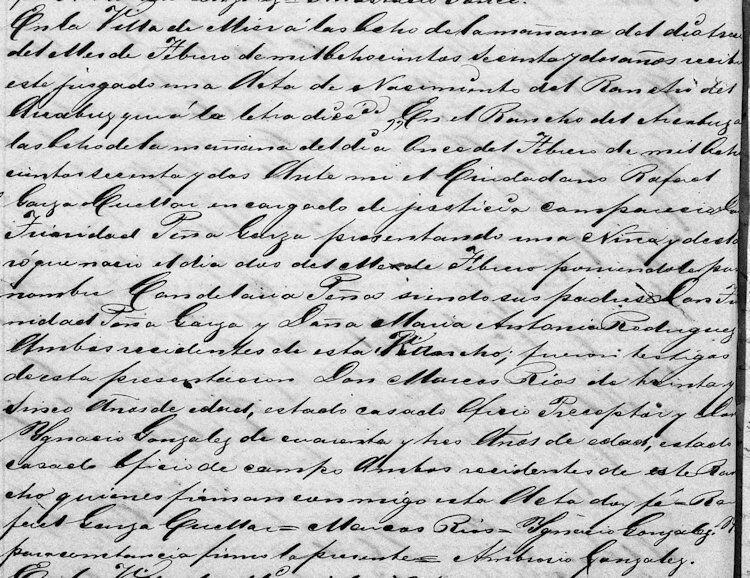 En la Villa de Mier á las Ocho de la mañana del dia tre
del Mes de Febrero de mil Ochocientos secenta y dos años recibi
este jusgado una Acta de Nacimiento del Rancho del
Arcabuz que á la letra dice „En el Rancho del Arcabuz a
las Ocho de la mañana del dia Once del Febrero de mil Ocho
cientos secenta y dos Ante mi el Ciudadano Rafael
Garza Cuellar encargado de justicia comparecio Don
Trinidad Peña Garza presentando una Niña y decla
ro que nacio el dia dos del Mes de Febrero poniendole por
nombre Candelaria Peña siendo sus padres Don Tri
nidad Peña Garza y Doña Maria Antonia Rodriguez
Ambos recidentes de este Rancho; fueron testigos
de esta presentacion Don Marcos Rios de treinta y
sinco Años de edad, estado casado Oficio Preceptor y Don
Ygnacio Gonzalez de cuarenta y tres Años de edad, estado
casado Oficio de campo Ambos recidentes de este Ran
cho, quienes firman conmigo esta Acta doy fé = Ra
fael Garza Cuellar = Marcos Rios = Ygnacio Gonzalez.
para constancia firmo la presente = Ambrocio Gonzalez.